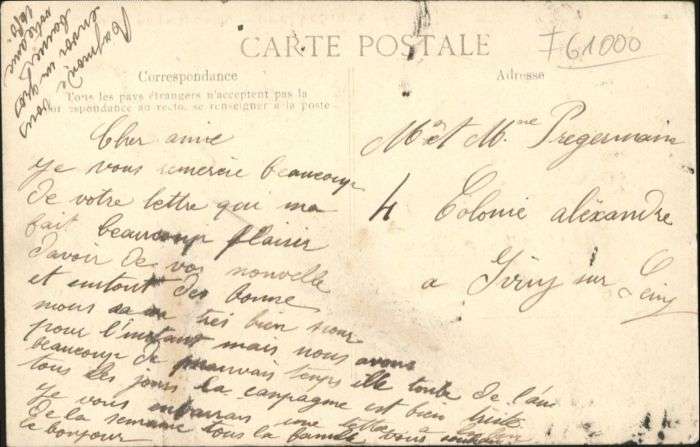 Raymonde vous
envoi un gros
baisé
CARTE POSTALE
I 61000
Correspondance
Tous les pays étrangers n'acceptent pas la
correspondance au recto, se renseigner à la poste
Adresse
Cher amie
je vous remercie beaucoup
de votre lettre qui ma
fait beaucoup plaisir
davoir de vos nouvelle
et surtout des bonne
nous très bien
pour l'instant mais nous avons
beaucoup de mauvais temps elle tombe de l'eau
tous les jours la campagne est bien triste
je vous une lettre
de la semaine tous la famille vous
le bonjour
Mr et Mme Pregermain
4 Colonie aléxandre
a Ivriy sur Seine